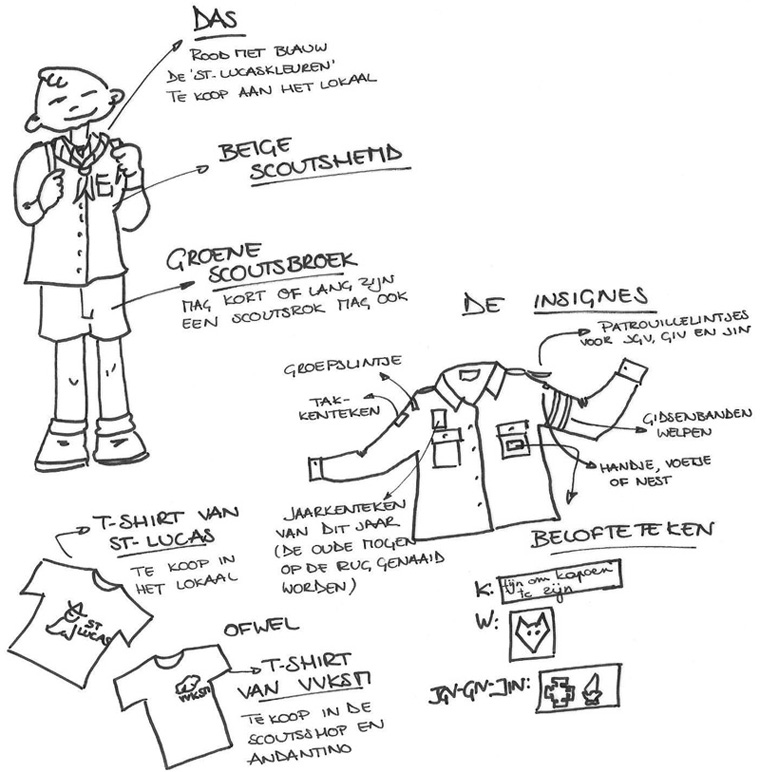 DAS
ROOD MET BLAUW
DE 'ST-LUCASKLEUREN'
TE KOOP AAN HET LOKAAL
BEIGE
SCOUTSHEMD
GROENE
SCOUTSBROEK
MAG KORT OF LANG ZIJN
EEN SCOUTSROK MAG OOK
DE INSIGNES
PATROUILLELINTJES
VOOR JGV, GIV EN JIN
GROEPSLINTJE
TAK-
KENTEKEN
GIDSENBANDEN
WELPEN
HANDJE, VOETJE
OF NEST
JAARKENTEKEN
VAN DIT JAAR
(DE OUDE MOGEN
OP DE RUG GENAAID
WORDEN)
BELOFTETEKEN
K: fijn om kapoen
te zijn
W:
JGV-GIV-JIN:
T-SHIRT VAN
ST-LUCAS
TE KOOP IN
HET LOKAAL
ST
LUCAS
OFWEL
T-SHIRT
VAN VVKSM
TE KOOP IN DE
SCOUTSSHOP EN
ANDANTINO
VVKSM